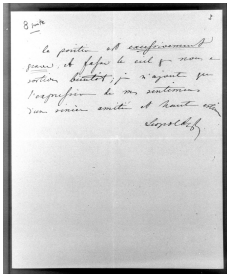 8 juillet
2
la position est excessivement
grave, et fasse le ciel qu'nous en
sortions bientôt; je n'ajoute que
l'expression de mes sentimens
d'un sincère amitié et haute estime
Leopold